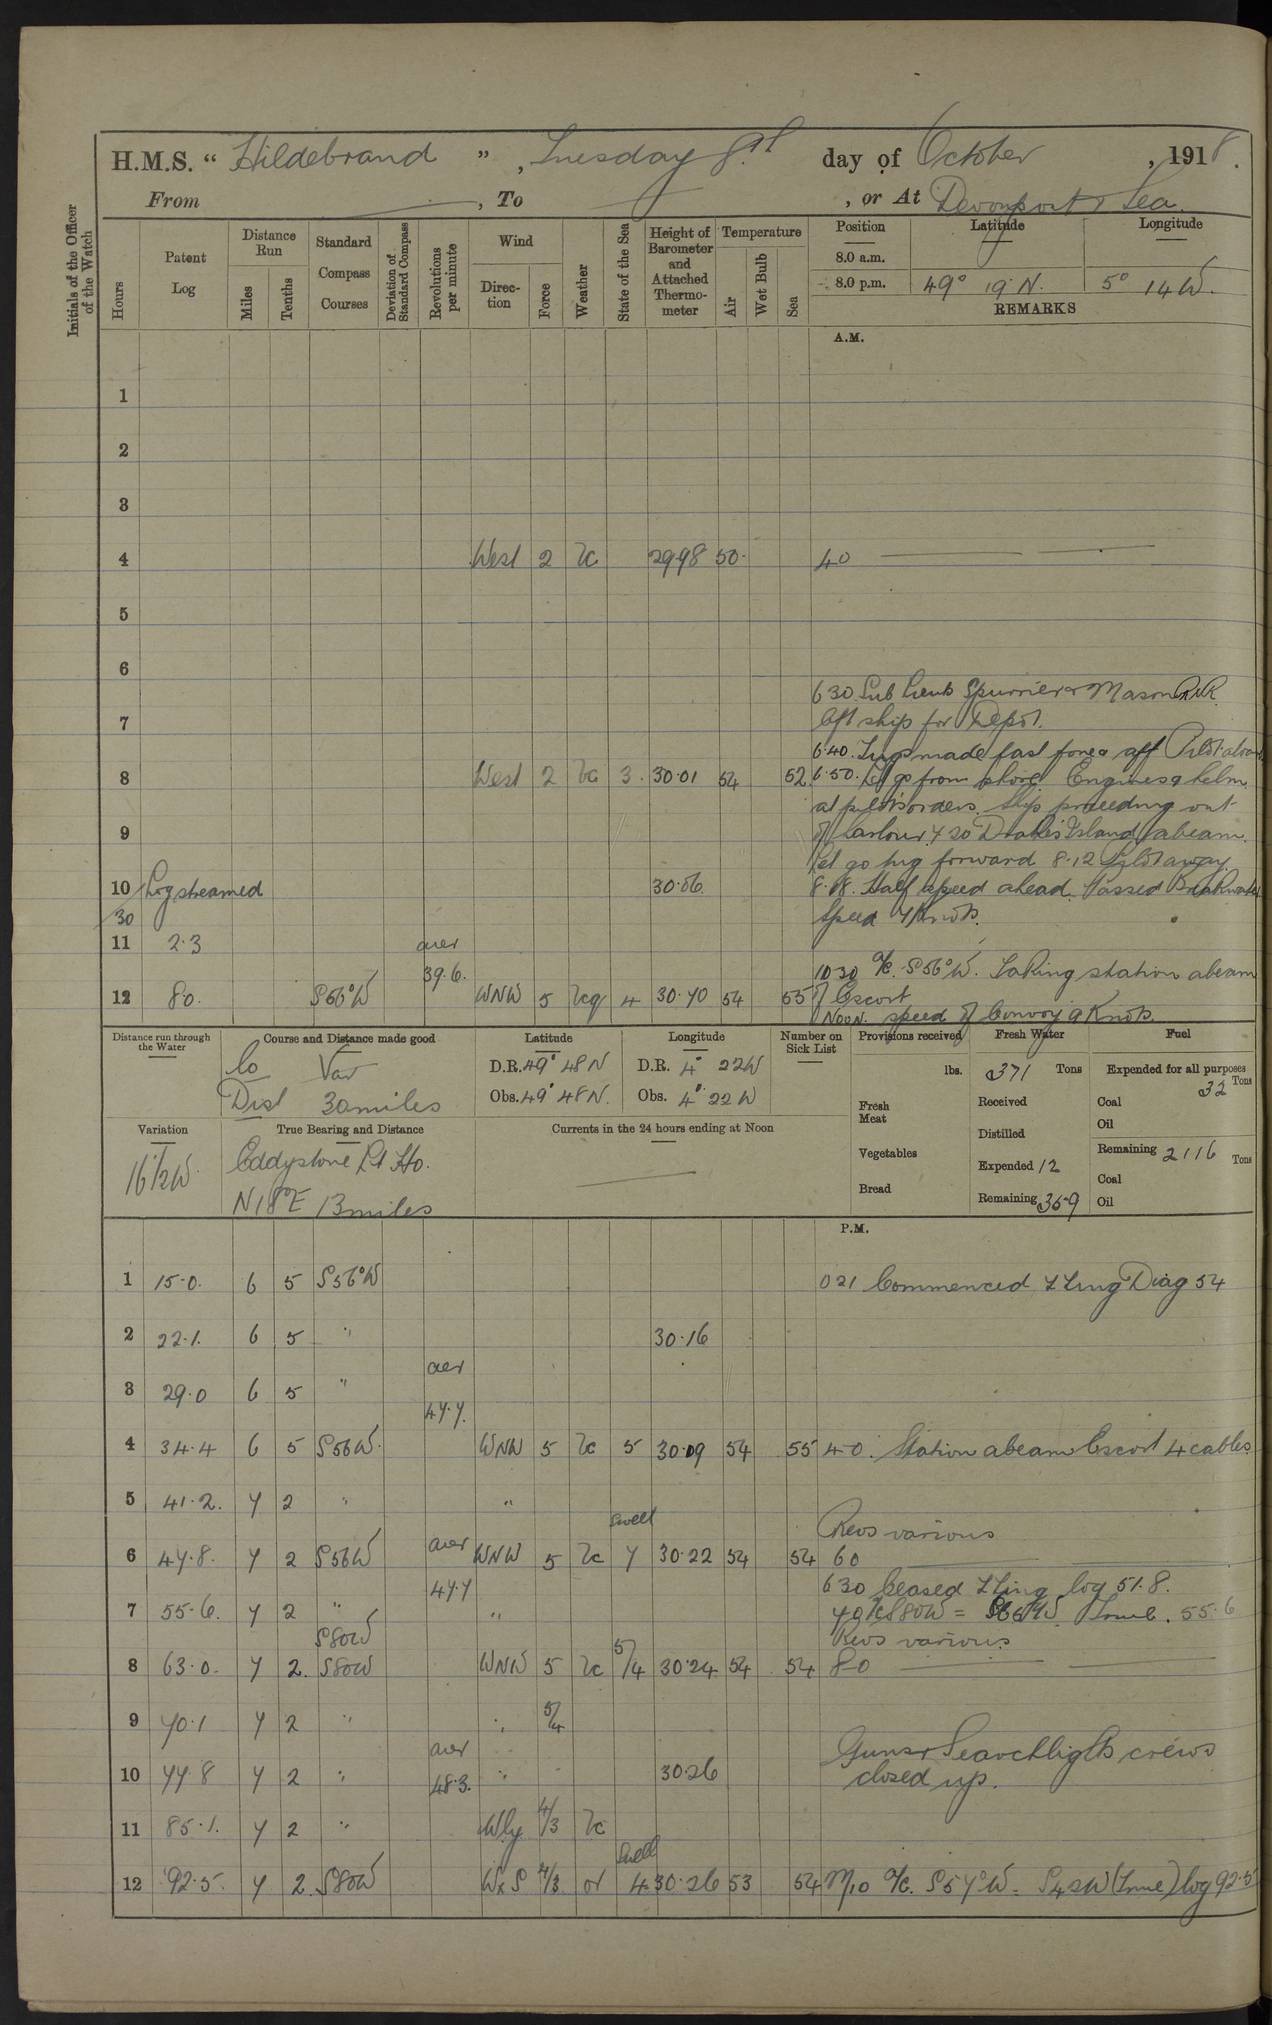 H.M.S. " Hildebrand ", Tuesday 8th day of October, 1918.
From , To , or At Devonport & Sea.
Initials of the Officer of the Watch
Hours
Patent Log
Distance Run
Miles
Tenths
Standard Compass Courses
Deviation of Standard Compass
Revolutions per minute
Wind
Direction
Force
Weather
State of the Sea
Height of Barometer and Attached Thermometer
Temperature
Air
Wet Bulb
Sea
Position Latitude Longitude
8.0 a.m.
8.0 p.m. 49° 19' N. 5° 14 W.
REMARKS
A.M.
1
2
3
4 West 2 bc 29.98 50. 4.0
5
6
6.30 Sub Lieuts Spurrier & Mason RNR
7 left ship for Depôt.
6.40. Tugs made fast fore & aft Pilot aboard
8 West 2 bc 3. 30.01 54 52 6.50. Let go from shore Engines & helm
at pilots orders. Ship proceeding out
9 of harbour. 7 20 Drake's Island abeam.
Let go tug forward 8.12 Pilot away
10 Log streamed 30.06. 8.18. Half speed ahead. Passed Breakwater
30 Speed 7 Knots.
11 2.3 aver
39.6. 10 30 A/c. S 56° W. Taking station abeam
12 8.0. S 56° W WNW 5 bcq 4 30.70 54 55 of Escort
Noon. speed of Convoy 9 Knots.
Distance run through the Water
Course and Distance made good
Co Var
Dist 30 miles
Latitude
D.R. 49° 48 N
Obs. 49° 48 N.
Longitude
D.R. 4° 22 W
Obs. 4° 22 W
Number on Sick List
Provisions received
lbs.
Fresh Meat
Vegetables
Bread
Fresh Water
371 Tons
Received
Distilled
Expended 12
Remaining 359
Fuel
Expended for all purposes
32 Tons
Coal
Oil
Remaining 2116 Tons
Coal
Oil
Variation
16 1/2 W.
True Bearing and Distance
Eddystone Lt Ho.
N 18° E 13 miles
Currents in the 24 hours ending at Noon
P.M.
1 15.0. 6 5 S 56° W 0 21 Commenced ZZing Diag 54
2 22.1. 6 5 " 30.16
aver
3 29.0 6 5 "
47.7.
4 34.4 6 5 S 56 W. WNW 5 bc 5 30.09 54 55 4.0. Station abeam Escort 4 cables.
5 41.2. 7 2 " "
swell Revs various
6 47.8. 7 2 S 56 W aver WNW 5 bc 7 30.22 54 54 6.0
47.7 6 30 Ceased ZZing log 51.8.
7 55.6. 7 2 " " 7 0 A/c S 80 W = True. 55.6
S 80 W Revs various
8 63.0. 7 2. S 80 W WNW 5 bc 5/4 30.24 54 54 8.0
9 70.1 7 2 " " 5/4
aver Guns & Searchlights crews
10 77.8 7 2 " 48.3. " 30.26 closed up.
11 85.1. 7 2 " Wly 4/3 bc
Swell
12 92.5. 7 2 S 80 W W x S 4/3 or 4 30.26 53 54 A/c. S 57° W = S 42 W (True) log 92.5